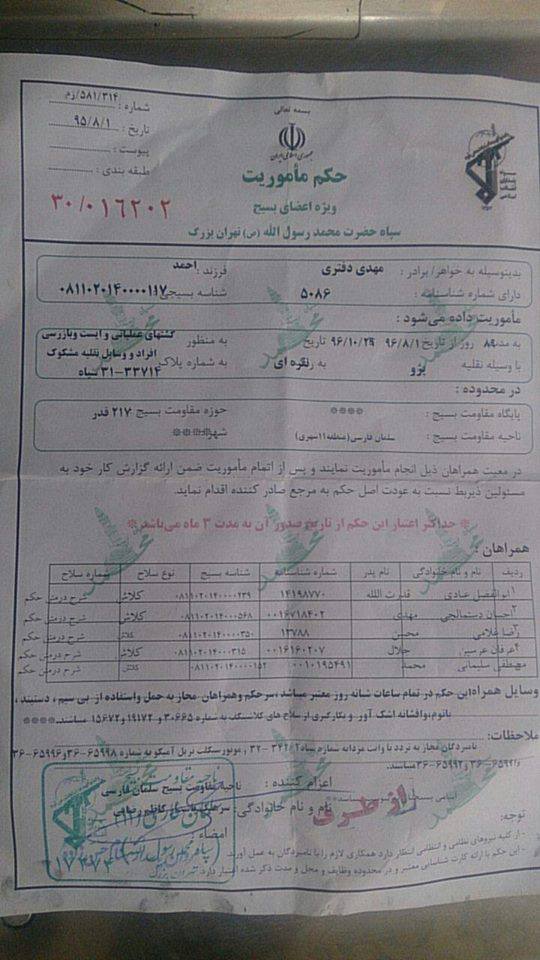 بسمه تعالی
جمهوری اسلامی ایران
شماره : ۵۸۱/۳۱۴/زم
تاریخ : ۹۵/۸/۱
پیوست :
طبقه بندی :
۳۰/۰۱۶۲۰۲
حکم مأموریت
ویژه اعضای بسیج
سپاه حضرت محمد رسول الله (ص) تهران بزرگ
بدینوسیله به خواهر/ برادر : مهدی دفتری فرزند : احمد
دارای شماره شناسنامه : ۵۰۸۶ شناسه بسیجی ۰۸۱۱۰۲۰۱۴۰۰۰۰۱۱۷
مأموریت داده می‌شود :
به مدت ۸۹ روز از تاریخ ۹۶/۸/۱ تاریخ ۹۶/۱۰/۲۹ به منظور گشتهای عملیاتی و ایست وبازرسی افراد و وسایل نقلیه مشکوک
با وسیله نقلیه پژو به رنگ نقره ای به شماره پلاک ۳۳۷۱۴-۳۱ سپاه
در محدوده :
پایگاه مقاومت بسیج : **** حوزه مقاومت بسیج ۲۱۷ قدر
ناحیه مقاومت بسیج : سلمان فارسی (منطقه۱۱شهری) شهر ****
در معیت همراهان ذیل انجام مأموریت نمایند و پس از اتمام مأموریت ضمن ارائه گزارش کار خود به
مسئولین ذیربط نسبت به عودت اصل حکم به مرجع صادر کننده اقدام نماید.
* حداکثر اعتبار این حکم از تاریخ صدور آن به مدت ۳ ماه می‌باشد *
همراهان :
ردیف نام و نام خانوادگی نام پدر شماره شناسنامه شناسه بسیج نوع سلاح شماره سلاح
۱ ابوالفضل عبادی قدرت الله ۱۴۱۹۸۷۷۰ ۰۸۱۱۰۲۰۱۴۰۰۰۰۲۳۹ کلاش شرح درمتن حکم
۲ احسان دستمالچی مهدی ۰۰۱۶۷۱۸۴۰۲ ۰۸۱۱۰۲۰۱۴۰۰۰۰۵۶۸ کلاش شرح درمتن حکم
۳ رضا غلامی محسن ۱۳۷۸۸ ۰۸۱۱۰۲۰۱۴۰۰۰۰۳۵۰ کلاش شرح درمتن حکم
۴ عرفان عرسین جلال ۰۰۱۶۱۶۰۲۰۷ ۰۸۱۱۰۲۰۱۴۰۰۰۰۳۱۵ کلاش شرح درمتن حکم
مصطفی سلیمانی محمد ۰۰۱۰۱۹۵۴۹۱ ۰۸۱۱۰۲۰۱۴۰۰۰۰۱۵۲ کلاش شرح درمتن حکم
وسایل همراه این حکم در تمام ساعات شبانه روز معتبر میباشد،سرحکم وهمراهان مجاز به حمل واستفاده از بی سیم ، دستبند ،
باتوم،وافشانه اشک آور و بکارگیری از سلاح های کلاشینکف به شماره ۳۰۶۶۵ و ۱۹۱۷۲ و۱۵۶۷۲ میباشند.****
ملاحظات: نامبردگان مجاز به تردد با وانت مزدا به شماره سپاه
اعزام کننده : ناحیه مقاومت بسیج سلمان فارسی
نام و نام خانوادگی: سرهنگ
از طرف
امضاء
توجه:
- از کلیه نیروهای نظامی و انتظامی انتظار دارد همکاری لازم را با نامبردگان به عمل آورند.
- این حکم با ارائه کارت شناسایی معتبر و در محدوده وظایف و محل و مدت ذکر شده اعتبار دارد.